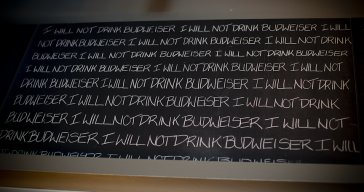 I WILL NOT DRINK BUDWEISER I WILL NOT DRINK BUDWEISER I WILL
NOT DRINK BUDWEISER I WILL NOT DRINK BUDWEISER I WILL NOT DRINK
BUDWEISER I WILL NOT DRINK BUDWEISER I WILL NOT DRINK BUDWEISER
I WILL NOT DRINK BUDWEISER I WILL NOT DRINK BUDWEISER I WILL
NOT DRINK BUDWEISER I WILL NOT DRINK BUDWEISER I WILL NOT DRINK
BUDWEISER I WILL NOT DRINK BUDWEISER I WILL NOT DRINK
BUDWEISER I WILL NOT DRINK BUDWEISER I WILL NOT
DRINK BUDWEISER I WILL NOT DRINK BUDWEISER I WILL
NOT DRINK BUDWEISER I WILL NOT DRINK BUDWEISER